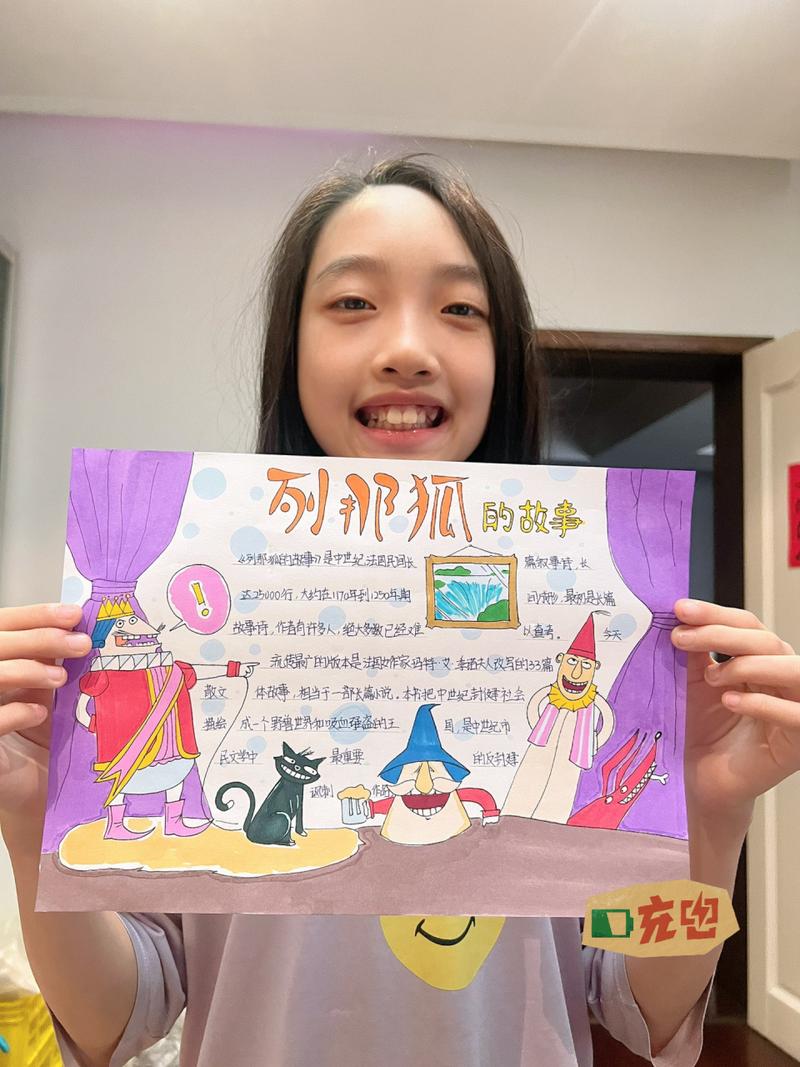 列那狐的故事
《列那狐的故事》是中世纪法国民间长篇叙事诗,长
达25000行,大约在1170年到1250年期间成形,最初是长篇
故事诗,作者有许多人,绝大多数已经难以查考。今天
流传最广的版本是法国女作家玛特·艾·季诺夫人改写的33篇
散文体故事,相当于一部长篇小说。本书把中世纪封建社会
描绘成一个野兽世界和强盗的王国,是中世纪市
民文学中最重要的反封建
讽刺作品
!
充电